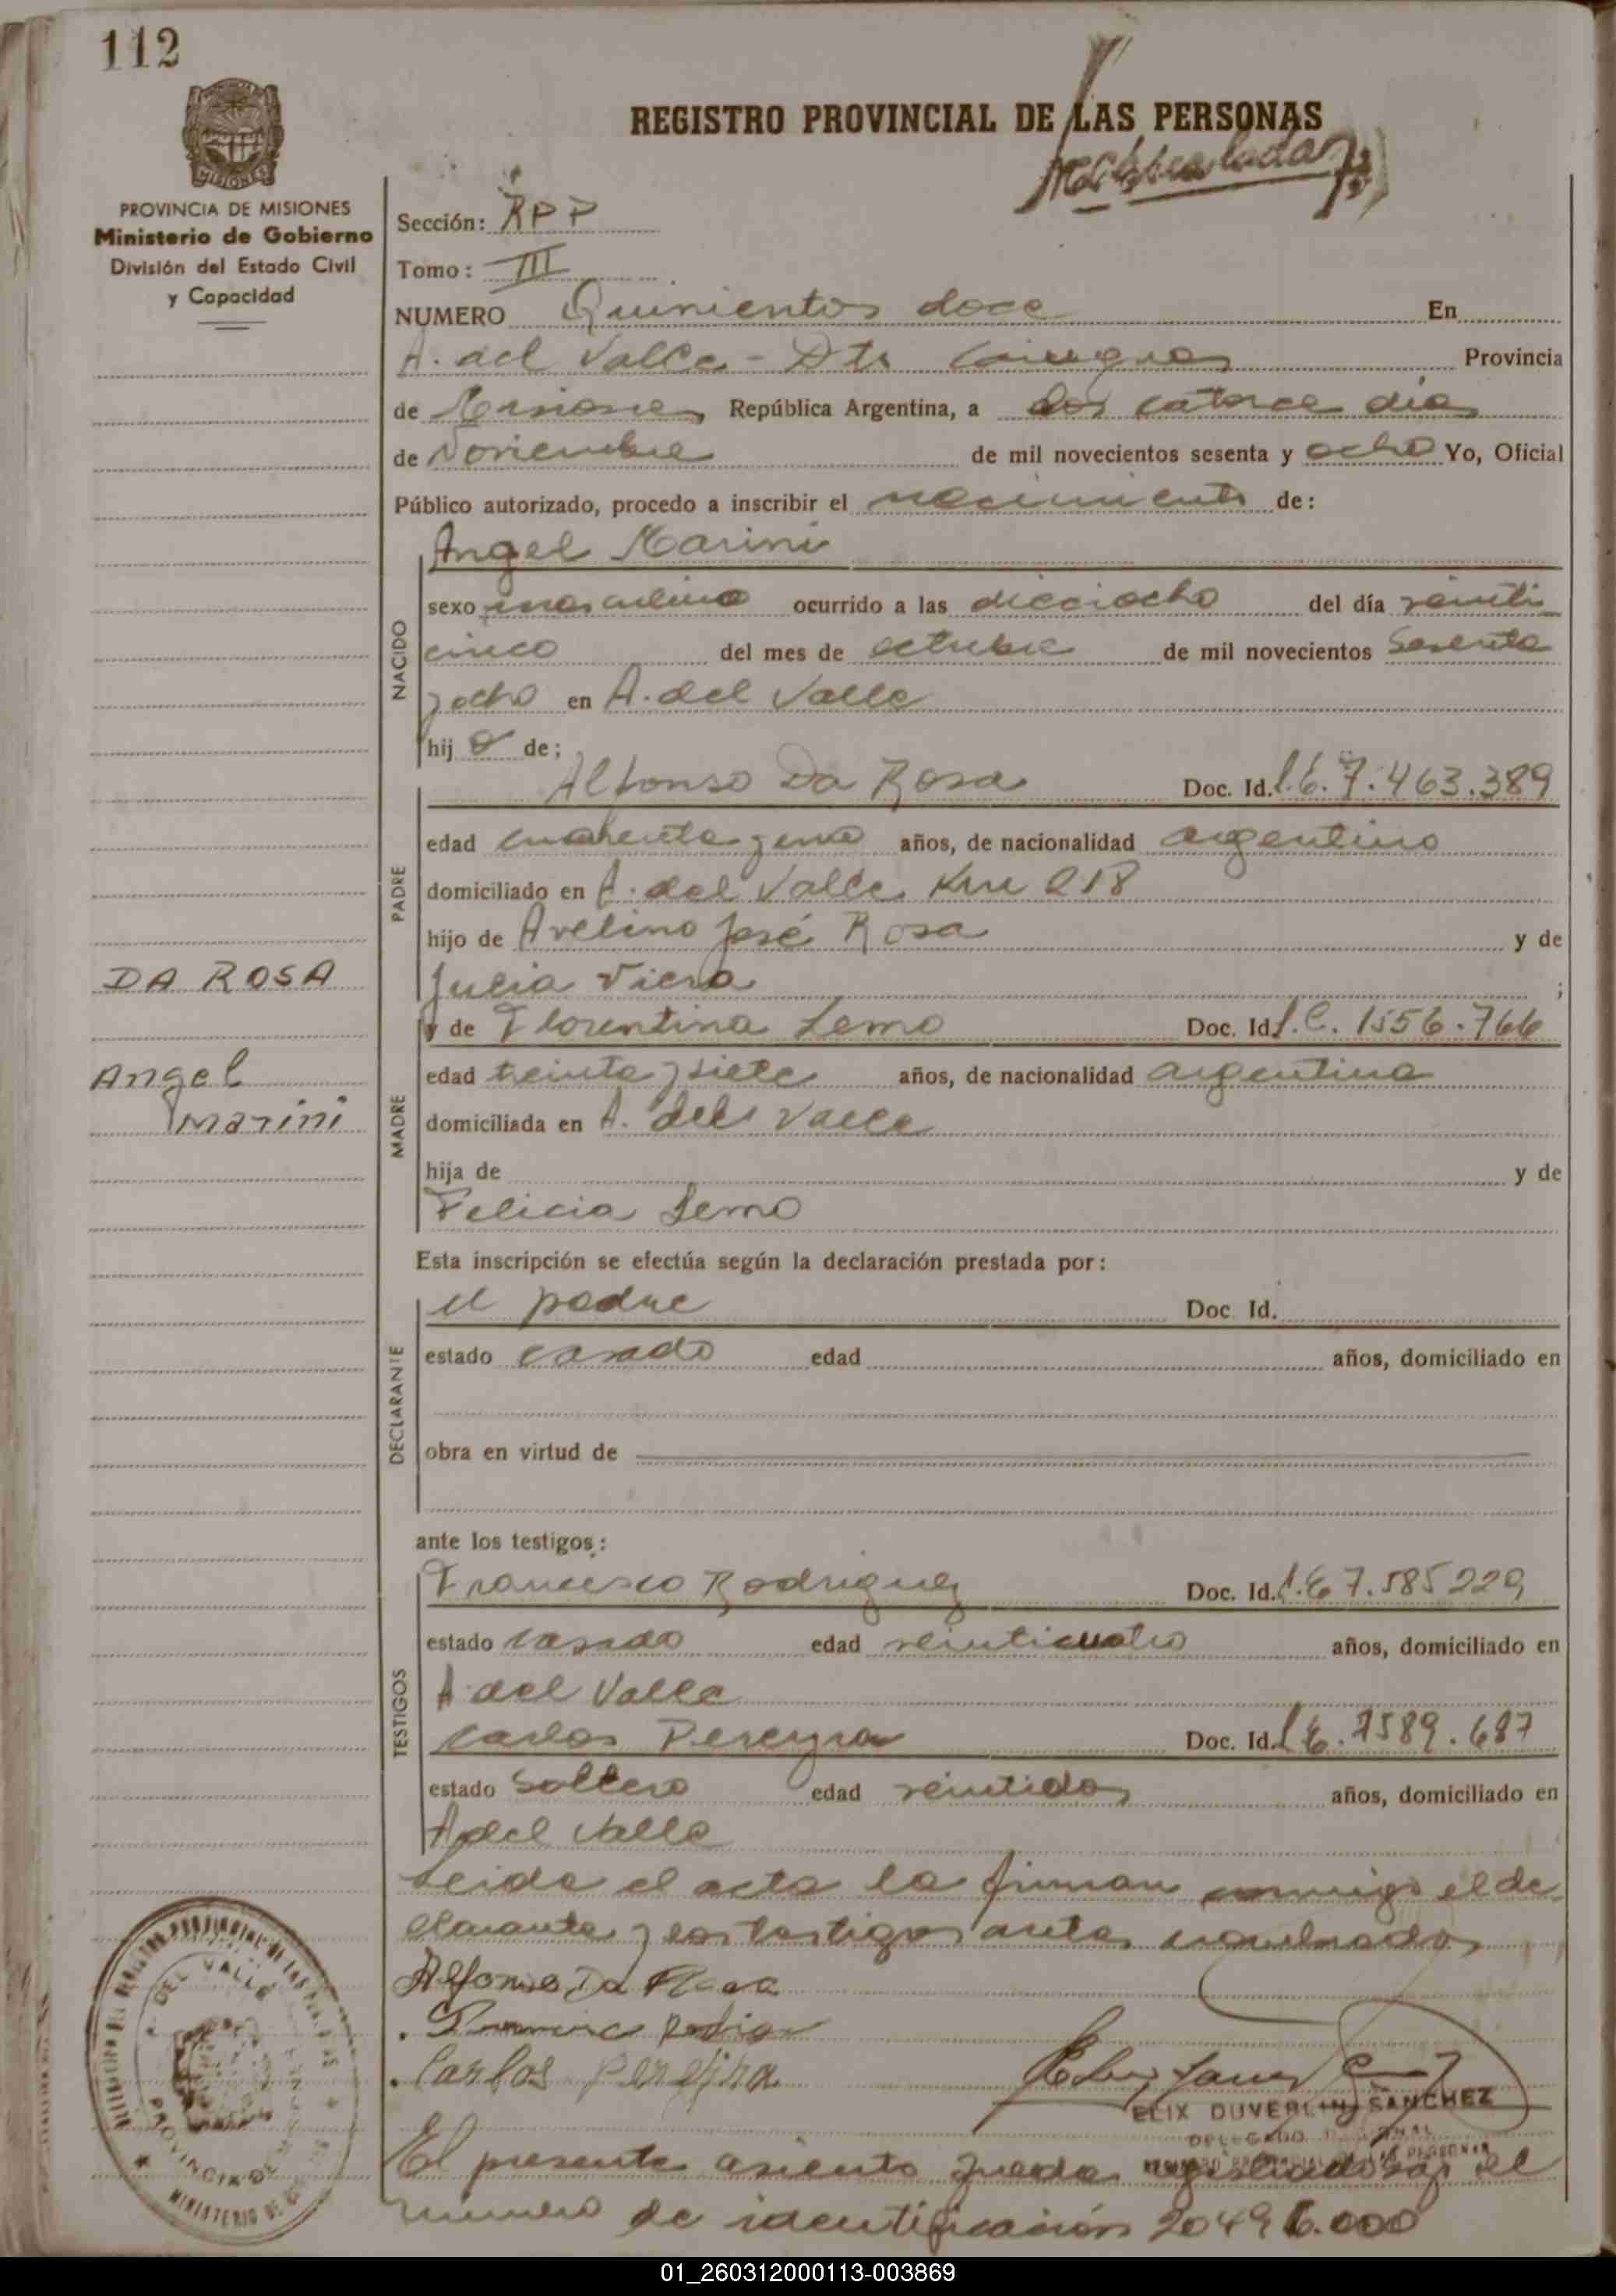 112
REGISTRO PROVINCIAL DE LAS PERSONAS
MISIONES
PROVINCIA DE MISIONES
Ministerio de Gobierno
División del Estado Civil
y Capacidad
Sección: RPP
Tomo: III
NUMERO Quinientos doce En
A. del Valle - Dto Cainguas Provincia
de Misiones, República Argentina, a los catorce dias
de Noviembre de mil novecientos sesenta y ocho Yo, Oficial
Público autorizado, procedo a inscribir el nacimiento de:
Angel Marini
NACIDO
sexo masculino ocurrido a las dieciocho del día veinti
cinco del mes de octubre de mil novecientos sesenta
y ocho en A. del Valle
hij o de;
Alfonso Da Rosa Doc. Id. L.E. 7.463.389
PADRE
edad cuarenta y uno años, de nacionalidad argentino
domiciliado en A. del Valle Km 218
hijo de Avelino José Rosa y de
Julia Viera ;
y de Florentina Lemo Doc. Id. L.C. 1556.766
DA ROSA
Angel
Marini
MADRE
edad treinta y siete años, de nacionalidad argentina
domiciliada en A. del Valle
hija de y de
Felicia Lemo
Esta inscripción se efectúa según la declaración prestada por:
DECLARANTE
el padre Doc. Id.
estado casado edad años, domiciliado en
obra en virtud de
ante los testigos:
TESTIGOS
Francisco Rodriguez Doc. Id. L.E 7.585229
estado casado edad veinticuatro años, domiciliado en
A del Valle
Carlos Pereyra Doc. Id. L E. 7589.687
estado soltero edad veintidos años, domiciliado en
A del Valle
Leida el acta la firman conmigo el de
clarante y los testigos antes nombrados
Alfonso Da Rosa
Carlos Pereyra
ELIX DUVERLIN SANCHEZ
DELEGADO
El presente asiento queda registrado bajo el
número de identificación 20496.000
DEL VALLE
PROVINCIA DE MISIONES
MINISTERIO DE
01_260312000113-003869